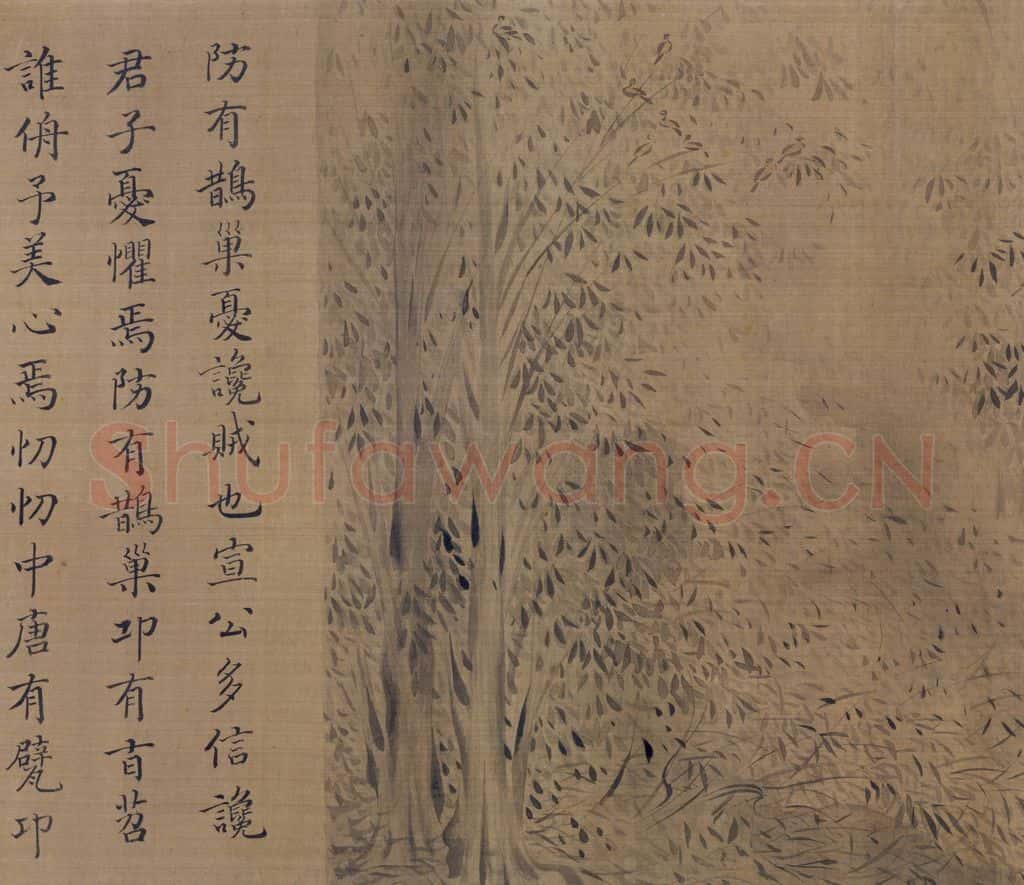 防有鵲巢憂讒賊也宣公多信讒
君子憂懼焉防有鵲巢卭有旨苕
誰侜予美心焉忉忉中唐有甓卭
Shufawang.CN